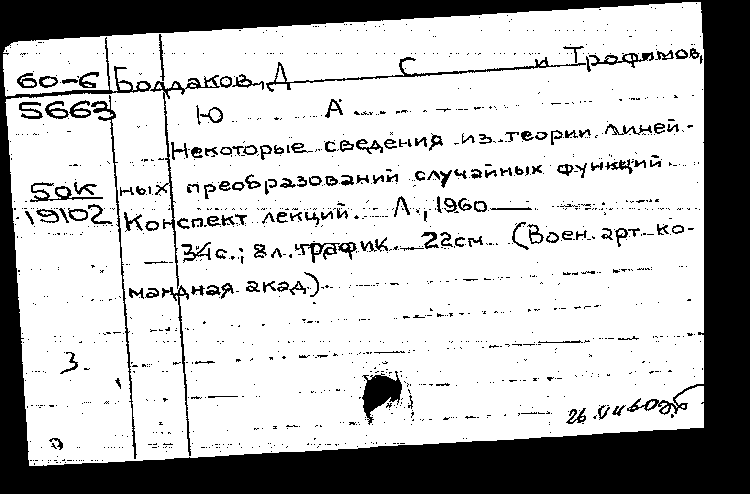 60-6 Болдаков, Д С и Трофимов,
5663 Ю А
Некоторые сведения из теории линей-
50к ных преобразований случайных функций.
19102 Конспект лекций. Л., 1960
34с.; 8 л. график. 22см (Воен. арт. ко-
мандная акад.)
3.